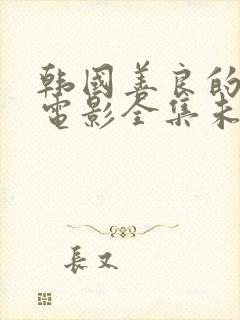 韩國善良的
電影全集未
長又